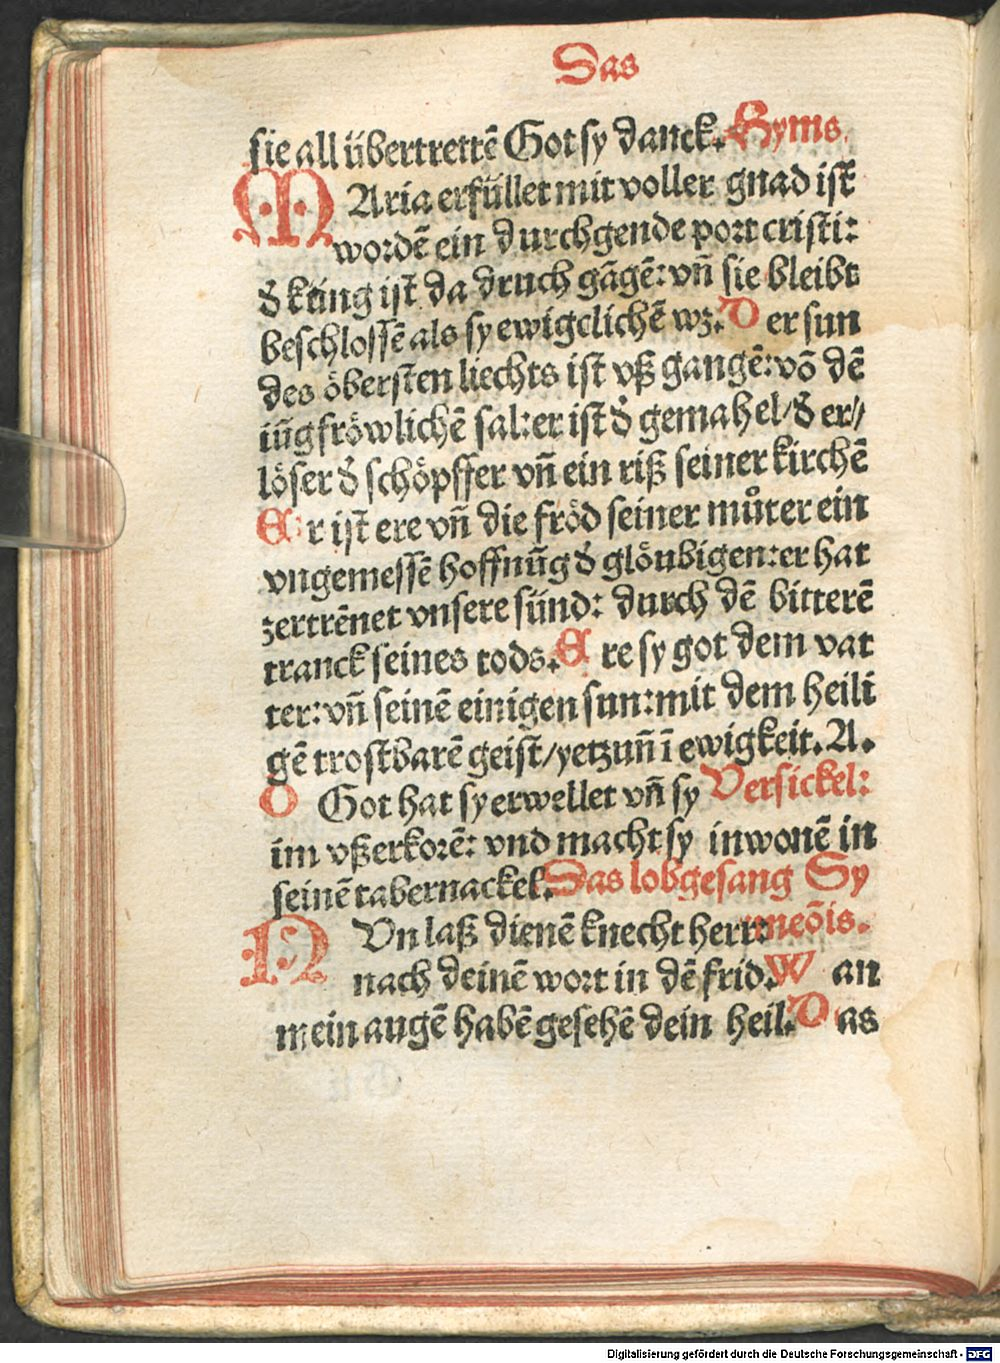 Das
sie all übertrettē Got sy danck. Hyms.
MAria erfüllet mit voller gnad ist
wordē ein durchgende port cristi:
d̓ küng ist da druch gāgē: vn̄ sie bleibt
beschlossē als sy ewigclichē wz. Der sun
des öbersten liechts ist vß gangē: vō dē
iūgfröwlichē sal: er ist d̓ gemahel/ d̓ er//
löser d̓ schöpffer vn̄ ein riß seiner kirchē
Er ist ere vn̄ die fröd seiner můter ein
vngemessē hoffnūg d̓ glöubigen: er hat
zertrēnet vnsere sünd: durch dē bitterē
tranck seines tods. Ere sy got dem vat
ter: vn̄ seinē einigen sun: mit dem heili
gē trostbarē geist/ yetzun̄ ī ewigkeit. A.
O Got hat sy erwellet vn̄ sy Versickel:
im vßerkorē: vnd macht sy inwonē in
seinē tabernackel. Das lobgesang Sy
NVn laß dienē knecht herr: meōis.
nach deinē wort in dē frid. Wan
mein augē habē gesehē dein heil. Das
Digitalisierung gefördert durch die Deutsche Forschungsgemeinschaft - DFG